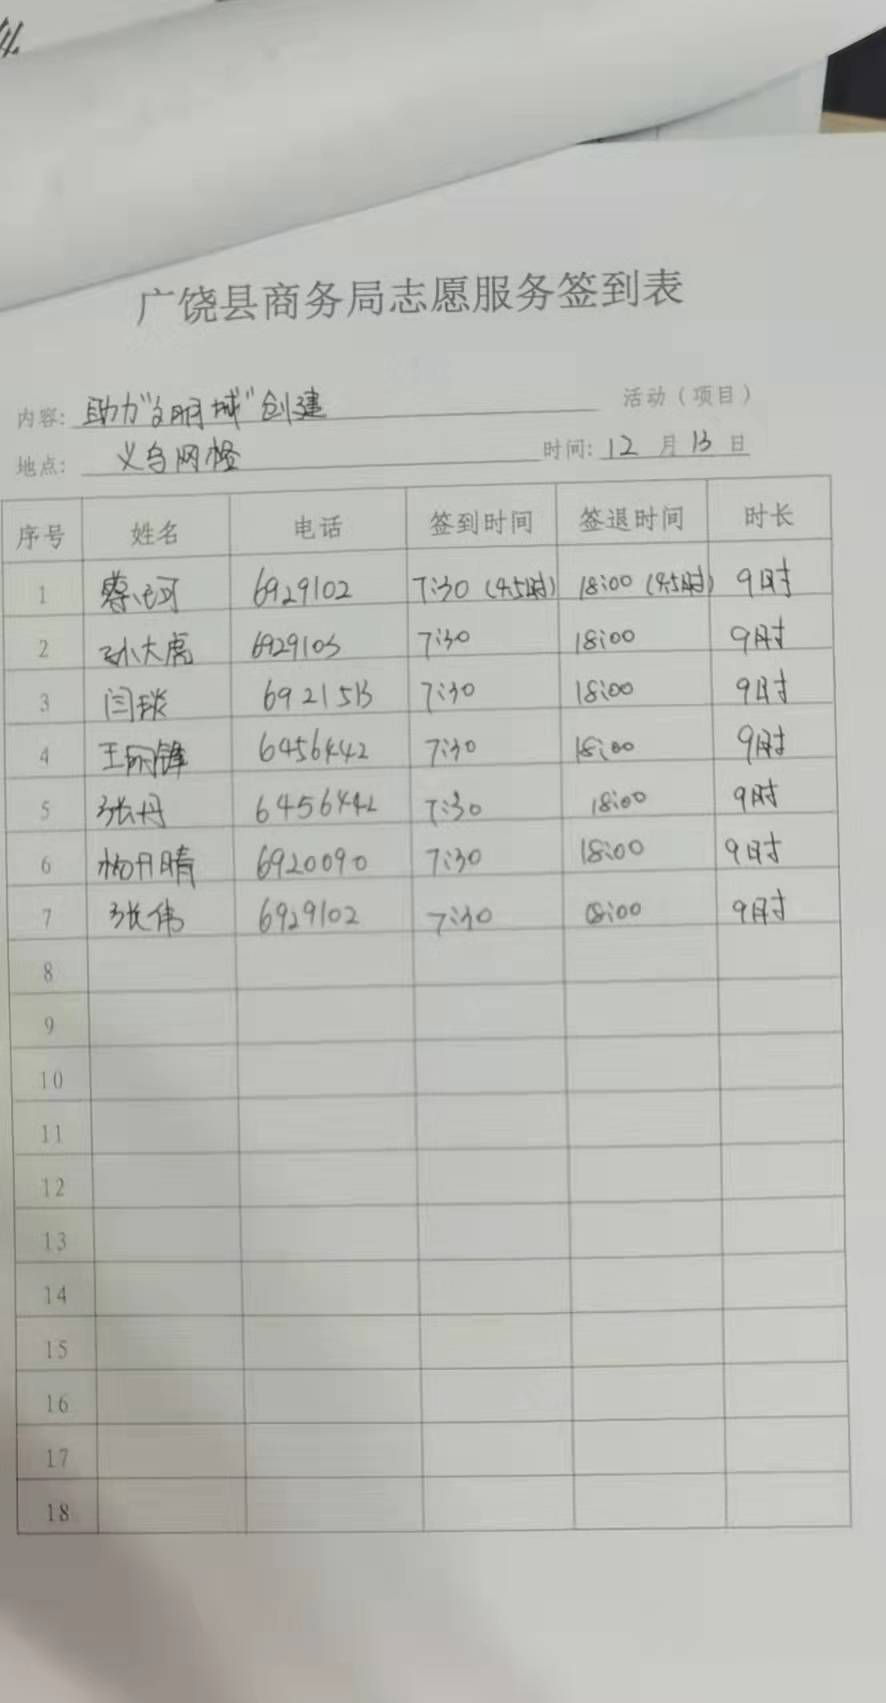 广饶县商务局志愿服务签到表
内容: 助力"文明城"创建 活动（项目）
地点: 义乌网格 时间: 12 月 13 日
序号 姓名 电话 签到时间 签退时间 时长
1 6929102 7:30 (4.5时) 18:00 (4.5时) 9时
2 孙大虎 6929103 7:30 18:00 9时
3 闫琰 6921513 7:30 18:00 9时
4 王丽锋 6456442 7:30 18:00 9时
5 张丹 6456442 7:30 18:00 9时
6 杨丹晴 6920090 7:30 18:00 9时
7 张伟 6929102 7:30 18:00 9时
8
9
10
11
12
13
14
15
16
17
18